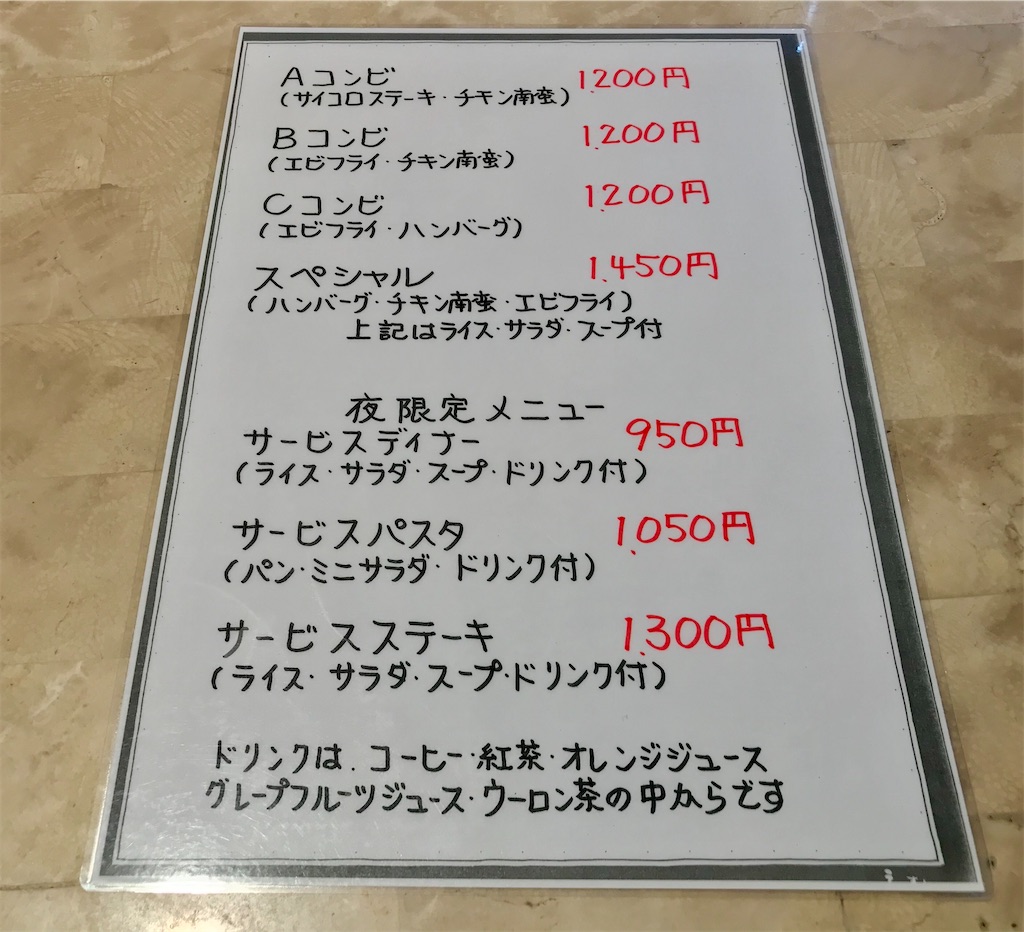 Aコンビ 1,200円
(サイコロステーキ・チキン南蛮)
Bコンビ 1,200円
(エビフライ・チキン南蛮)
Cコンビ 1,200円
(エビフライ・ハンバーグ)
スペシャル 1,450円
(ハンバーグ・チキン南蛮・エビフライ)
上記はライス・サラダ・スープ付
夜限定メニュー
サービスディナー 950円
(ライス・サラダ・スープ・ドリンク付)
サービスパスタ 1,050円
(パン・ミニサラダ・ドリンク付)
サービスステーキ 1,300円
(ライス・サラダ・スープ・ドリンク付)
ドリンクは、コーヒー・紅茶・オレンジジュース
グレープフルーツジュース・ウーロン茶の中からです